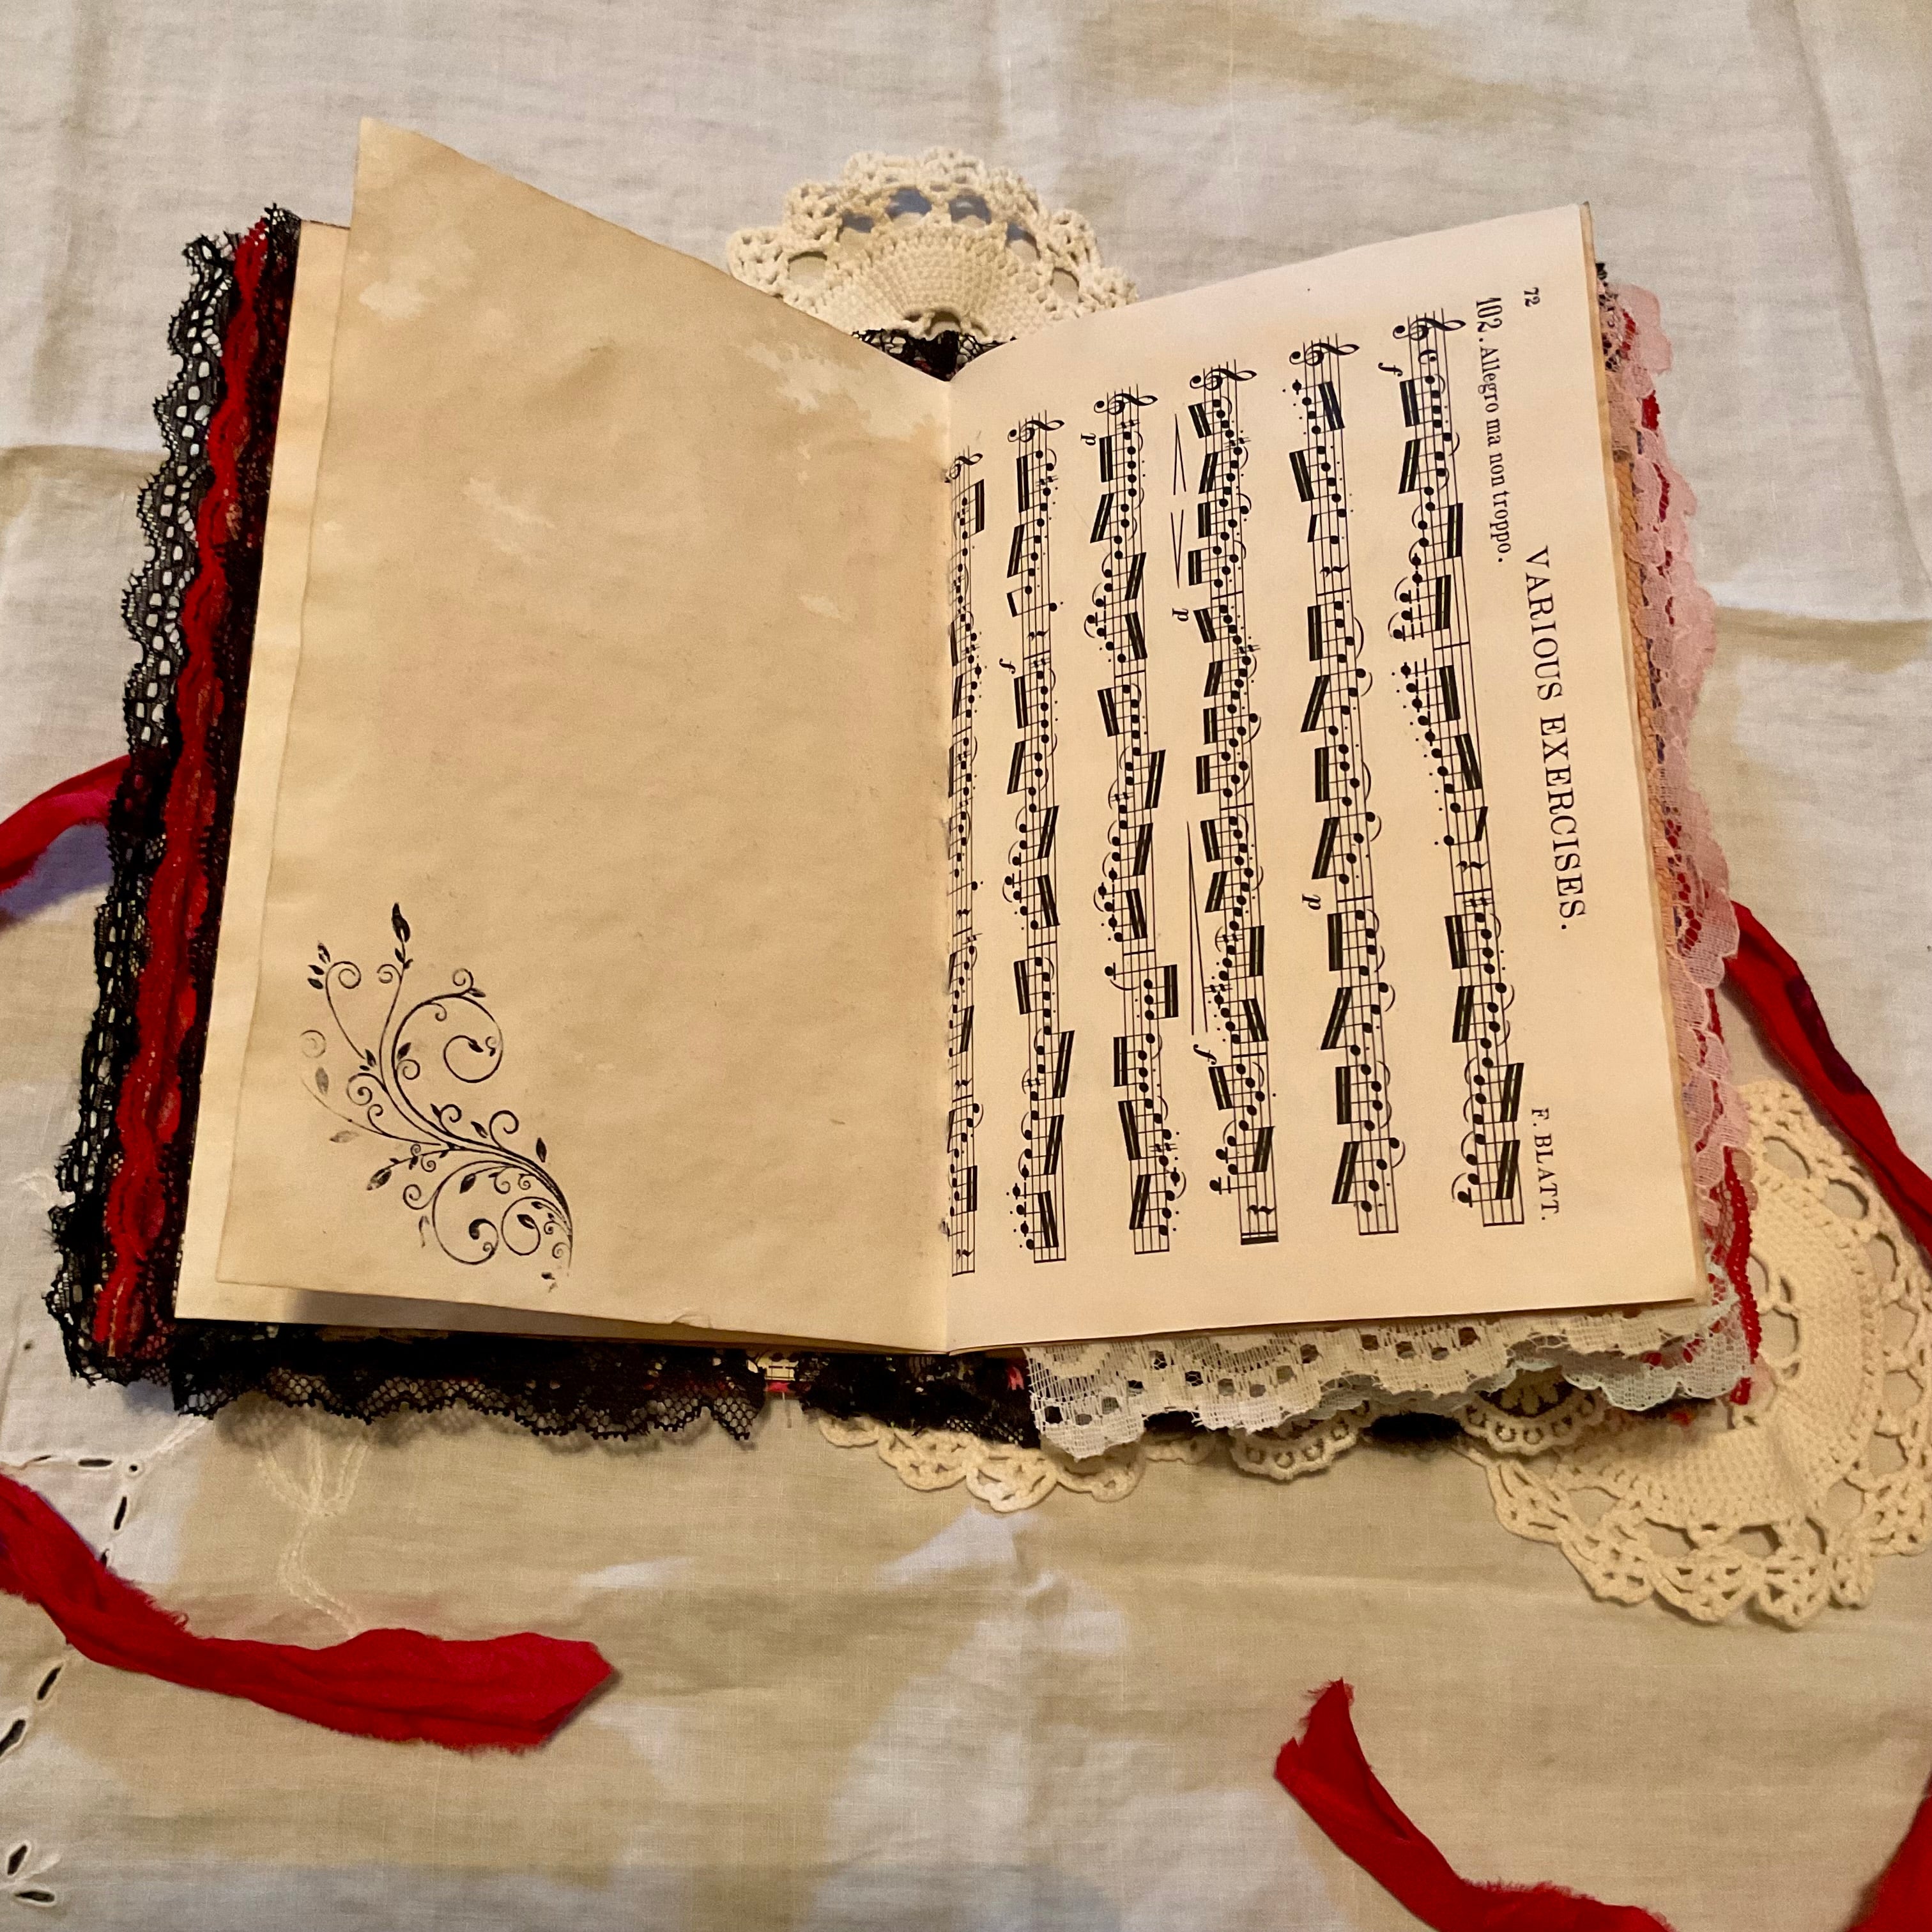 72
VARIOUS EXERCISES.
F. BLATT.
102. Allegro ma non troppo.
f
p
p
f
p
f